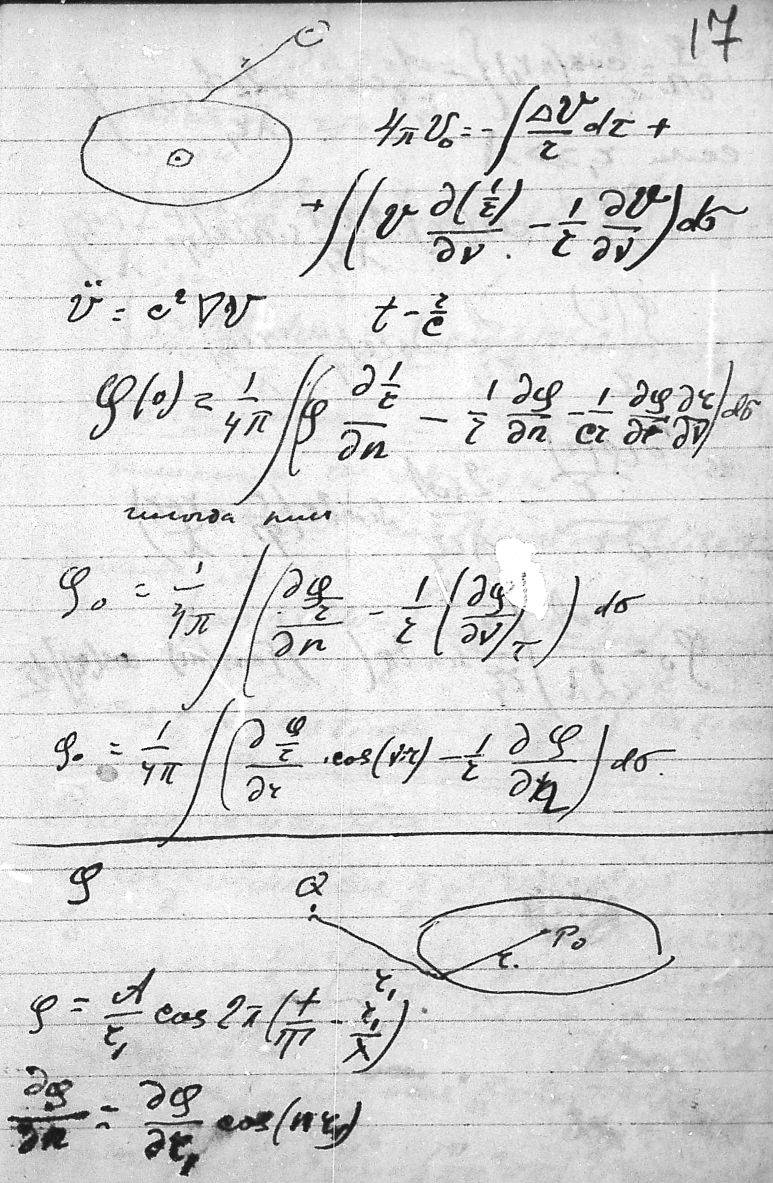 17
r
4πV₀ = -∫ ΔV/r dτ +
+ ∫(V ∂(1/r)/∂ν - 1/r ∂V/∂ν) dσ
V̈ = c² ∇V t - r/c
φ(0) = 1/4π ∫(φ ∂(1/r)/∂n - 1/r ∂φ/∂n - 1/cr ∂φ/∂t ∂r/∂ν) dσ
иногда
φ₀ = 1/4π ∫(∂(φ/r)/∂n - 1/r (∂φ/∂ν)τ) dσ
φ₀ = 1/4π ∫(∂(φ/r)/∂r · cos(νr) - 1/r ∂φ/∂n) dσ.
φ
Q
r. P₀
φ = A/r₁ cos 2π(t/T - r₁/λ)
r₁
∂φ/∂n = ∂φ/∂r₁ cos(n r₁)